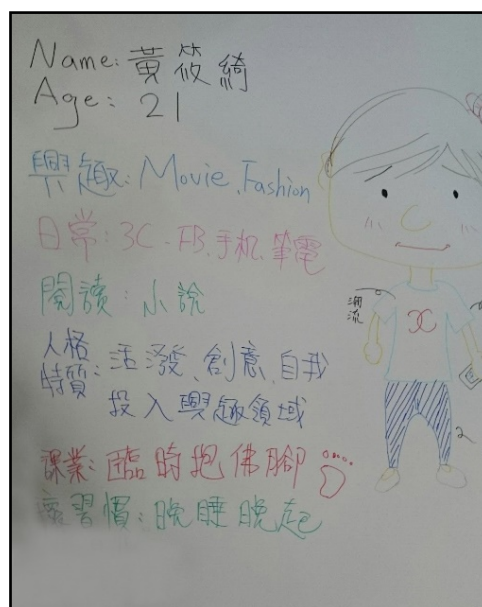 Name: 黃筱綺
Age: 21
興趣: Movie、Fashion
日常: 3C、FB、手机、筆電
閱讀: 小說
人格
特質: 活潑、創意、自我
投入興趣領域
課業: 臨時抱佛腳
壞習慣: 晚睡晚起
潮
流